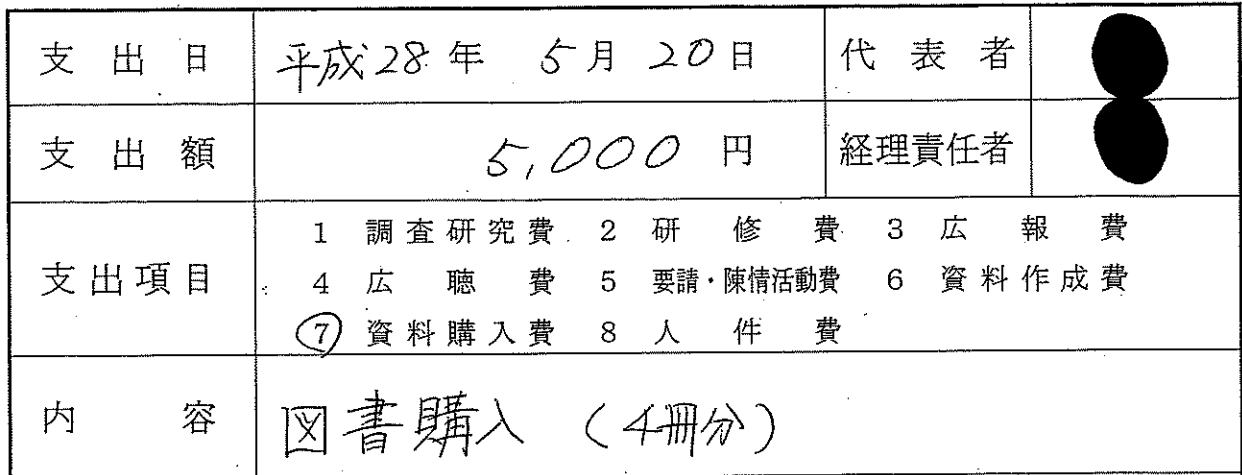 支出日 平成28年 5月20日 代表者
支出額 5,000円 経理責任者
1 調査研究費 2 研修費 3 広報費
支出項目 4 広聴費 5 要請・陳情活動費 6 資料作成費
⑦ 資料購入費 8 人件費
内容 図書購入 (4冊分)